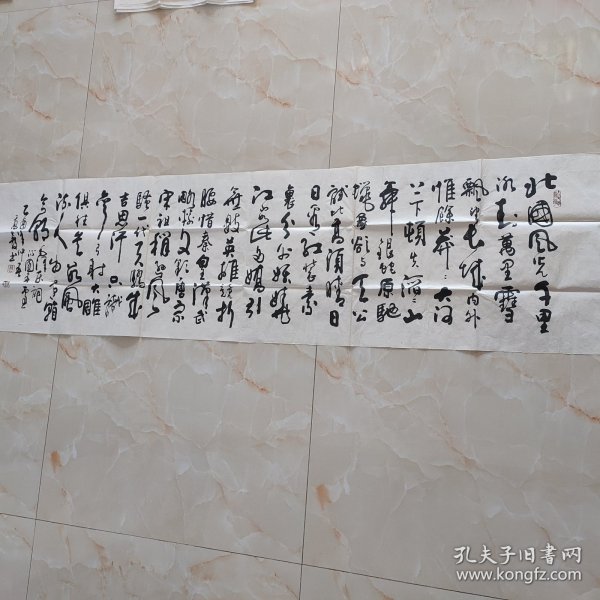 北國風光千里
冰封萬里雪
飄望長城内外
惟餘莽莽大河
上下頓失滔滔山
舞銀蛇原馳
蠟象欲与天公
試比高須晴日
日看红裝素
裹分外妖娆
江山如此多嬌引
無數英雄競折
腰惜秦皇漢武
略输文彩唐宗
宋祖稍遜風
騷一代天驕成
吉思汗只識
彎弓射大雕
俱往矣数風
流人物還看
今朝
孔夫子旧书网
www.kongfz.com